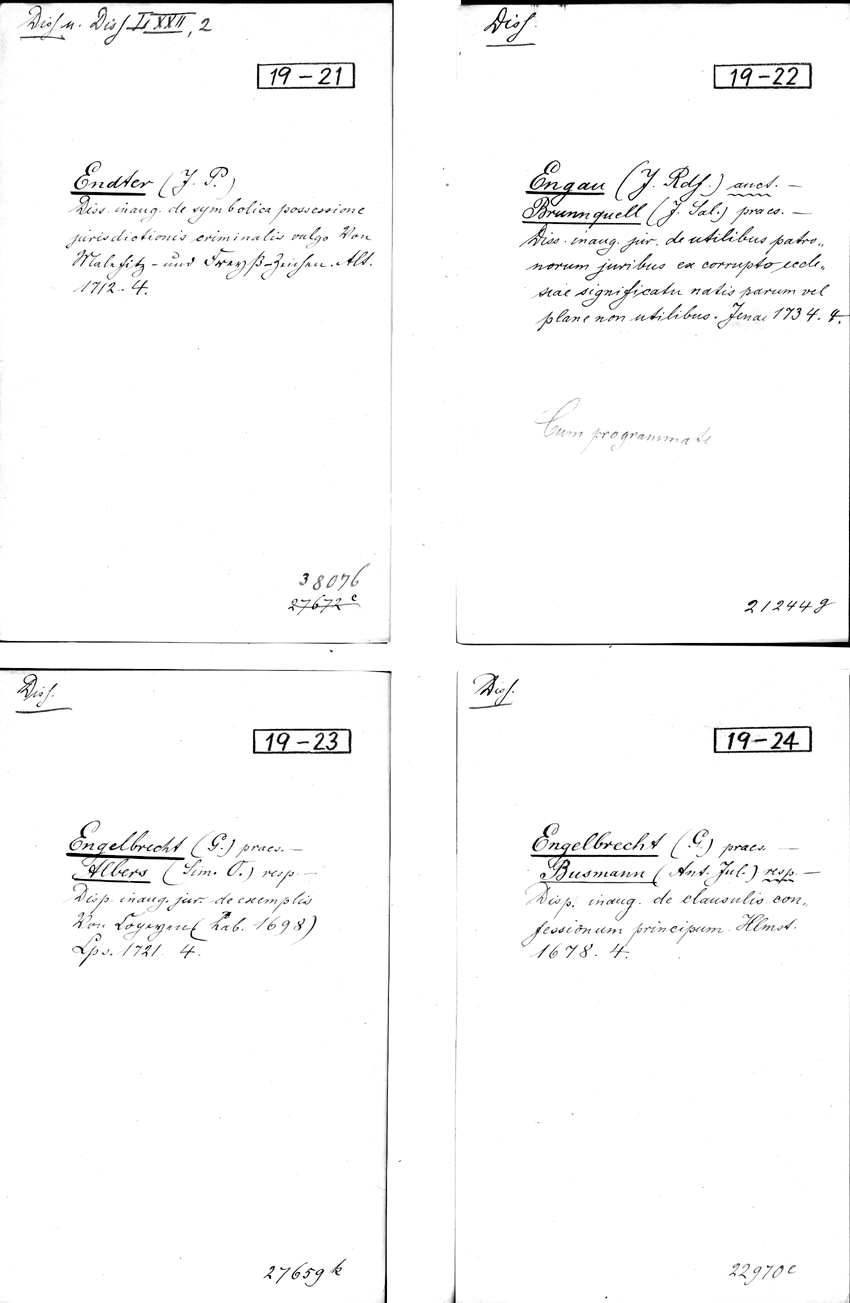 Diss. u. Diss. LXXII, 2
19-21
Endter (J. P.)
Diss. inaug. de symbolica possessione
jurisdictionis criminalis vulgo Von
Malefitz- und Freyß-Zeichen. Alt.
1712. 4.
38076
27672 c
Diss.
19-22
Engau (J. Rdf.) auct. —
Brunnquell (J. Sal.) praes. —
Diss. inaug. jur. de utilibus patro„
norum juribus ex corrupto eccle„
siae significatu natis parum vel
plane non utilibus. Jenae 1734. 4.
Cum programmate
21244 g
Diss.
19-23
Engelbrecht (G.) praes. —
Albers (Sim. O.) resp. —
Disp. inaug. jur. de exemplis
Von (Hab. 1698)
Lps. 1721. 4.
27659 k
Diss.
19-24
Engelbrecht (G.) praes. —
Busmann (Ant. Jul.) resp. —
Disp. inaug. de clausulis con„
fessionum principum. Hlmst.
1678. 4.
22970 c